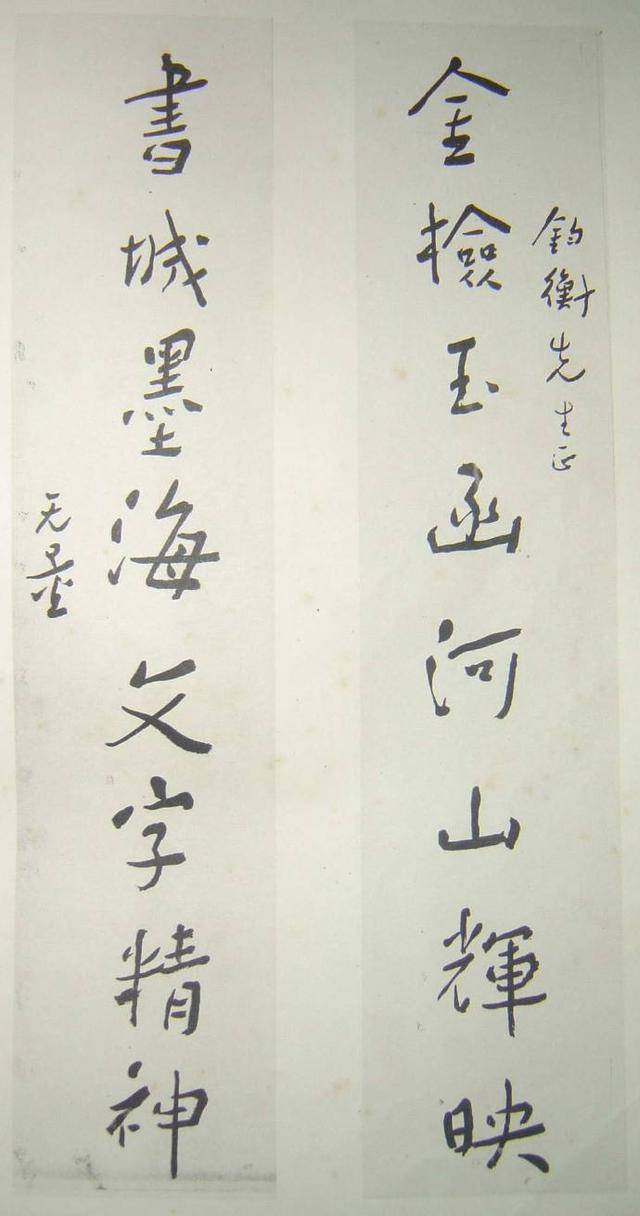 鈞衡先生正
金檢玉函河山輝映
書城墨海文字精神
无量